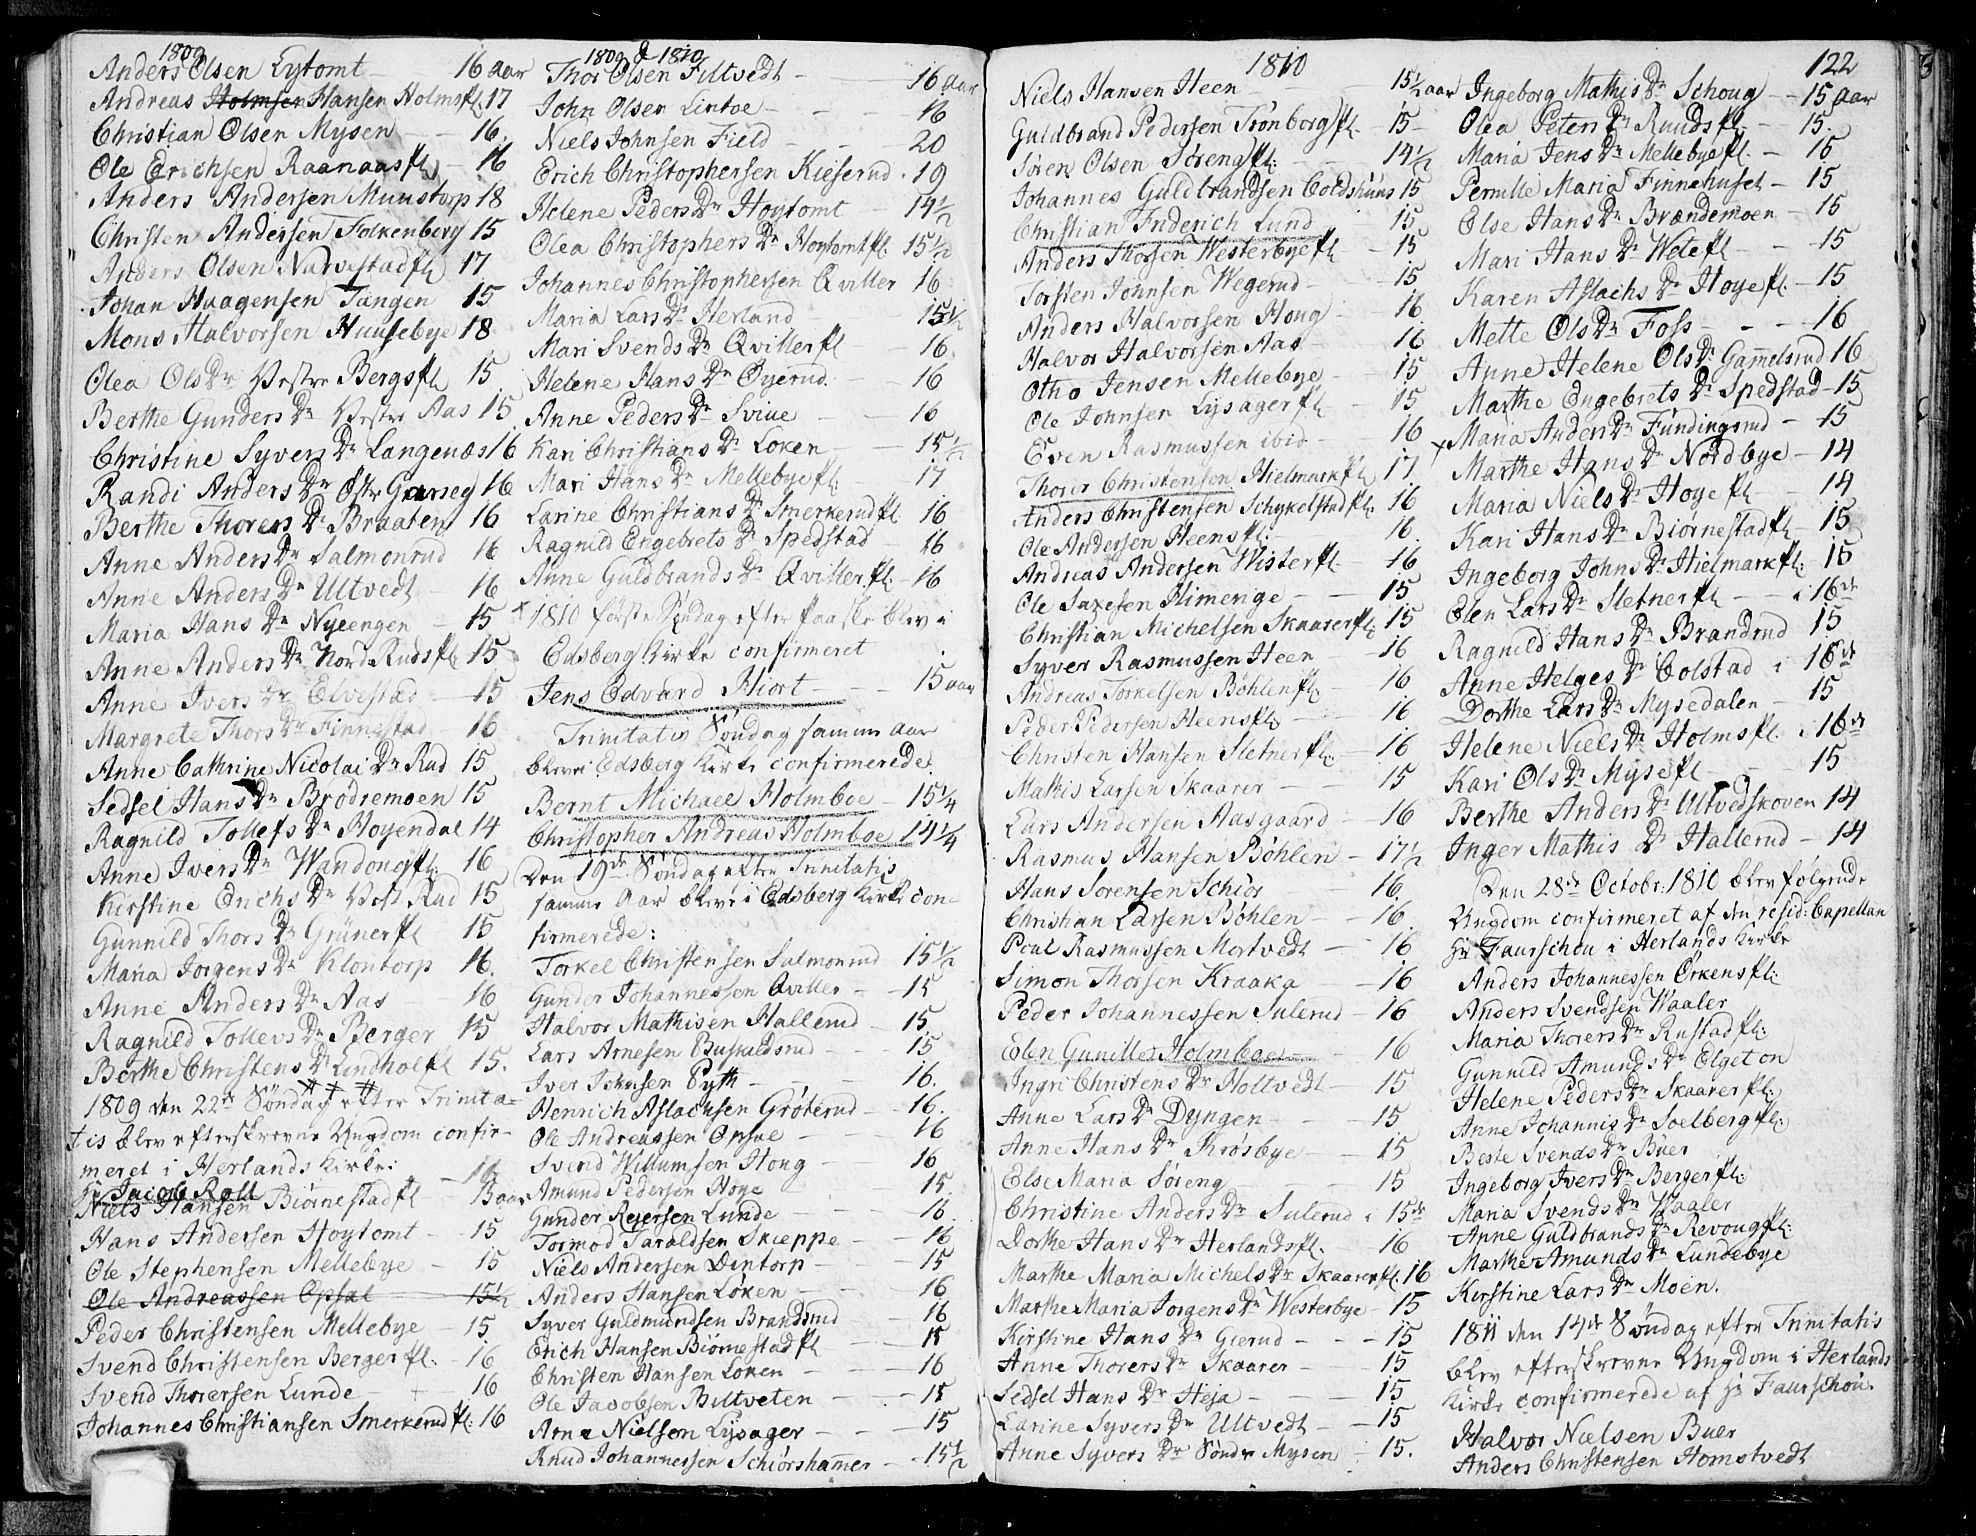 1809
Anders Olsen Lytomt 16 aar
Andreas Holmsen Hansen Holmspl 17
Christian Olsen Mysen 16.
Ole Erichsen Raanaaspl 16
Anders Andersen Muustorp 18
Christen Andersen Folkenberg 15
Anders Olsen Narvestadpl 17
Johan Haagensen Tangen 15
Mons Halvorsen Huusebye 18
Olea Ols Dr Vestre Bergspl 15
Berthe Gunders Dr Vestre Aas 15
Christine Syvers Dr Langenæs 16
Randi Anders Dr Østr Garseg 16
Berthe Thorers Dr Braaten 16
Anne Anders Dr Salmonrud 16
Anne Anders Dr Ultvedt 16
Maria Hans Dr Nyeengen 15
Anne Anders Dr Nord Rudspl 15
Anne Ivers Dr Elvestad 15
Margrete Thors Dr Finnestad 16
Anne Cathrine Nicolai Dr Rud 15
Sedsel Hans Dr Brødremoen 15
Ragnild Tollefs Dr Hoyendal 14
Anne Ivers Dr Wandougpl. 16
Kirstine Erichs Dr Vest Rud 15
Gunnild Thors Dr Grünerpl 15
Maria Jorgens Dr Klontorp 16.
Anne Anders Dr Aas 16
Ragnild Tollevs Dr Berger 15
Berthe Christens Dr Lindholpl 15.
1809 den 22de Søndag efter Trinita=
tis blev efterskrevne Ungdom confir-
meret i Herlands Kirke:
Hr Jacob Roll 16
Niels Hansen Biørnestadpl 15 aar
Hans Andersen Hoytomt 15
Ole Stephensen Mellebye 15
Ole Andreassen Opsal 15½
Peder Christensen Mellebye 15
Svend Christensen Bergerpl. 16
Svend Thorersen Lunde 16
Johannes Christiansen Smerkerudpl. 16
1809 & 1810
Thor Olsen Filtvedt 16 aar
John Olsen Lintoe 16
Niels Johnsen Field 20
Erich Christophersen Kieserud 19
Helene Peders Dr Hoytomt 14½
Olea Christophers Dr Hoytomtpl. 15½
Johannes Christophersen Qviller 16
Maria Lars Dr Herland 15½
Mari Svends Dr Qvillerpl 16.
Helene Hans Dr Øyerud 16
Anne Peders Dr Sviue 16
Kari Christians Dr Loken 15½
Mari Hans Dr Mellebyepl. 17
Larine Christians Dr Smerkerudpl 16
Ragnild Engebrets Dr Spedstad 16
Anne Guldbrands Dr Qvillerpl. 16
1810 første Søndag efter paaske blev i
Edsberg Kirke confirmeret
Jens Edvard Hiort 15 aar
Trinitatis Søndag samme aar
bleve i Edsberg Kirke confirmerede
Bernt Michael Holmboe 15¼
Christopher Andreas Holmboe 14¼
Den 19de Søndag efter Trinitatis
samme Aar bleve i Edsberg Kirke con-
firmerede:
Torkel Christensen Salmonrud 15½
Gunder Johannessen Qviller 15
Halvor Mathisen Hallerud 15
Lars Arnesen Buskaldsrud 15
Iver Johnsen Eyth 16.
Henrich Aslachsen Grøterud 16.
Ole Andreassen Opsal 16
Svend Willumsen Houg 16
Amund Pedersen Hoye 15
Gunder Reiersen Lunde 16
Tormod Taraldsen Skieppe 16
Niels Andersen Dintorp 15
Anders Hansen Løken 16
Syver Guldmundsen Brandsrud 16
Erich Hansen Biørnestadpl 15
Christen Hansen Loken 16
Ole Jacobsen Bultveten 15
Arne Nielsen Lysager 15
Knud Johannessen Schiørshammer 15½
1810
Niels Hansen Heen 15½ aar
Guldbrand Pedersen Trønborgpl. 15
Søren Olsen Sørengpl. 14½
Johannes Guldbrandsen Coldshuus 15
Christian Friderich Lund 15
Anders Thorsen Westerbyepl 15
Torsten Johnsen Wegerud 15
Anders Halvorsen Houg 16
Halvor Halvorsen Aas 16
Otho Jensen Mellebye 15
Ole Johnsen Lysagerpl 15
Even Rasmussen ibid 16
Thorer Christensen Hielmarkpl 17.
Anders Christensen Schykelstadpl. 16
Ole Andersen Heenspl. 16.
Andreas Andersen Wisterpl. 16
Ole Saxesen Himenge 15
Christian Michelsen Skaarerpl. 15
Syver Rasmussen Heen 16
Andreas Torkelsen Bøhlenpl. 16
Peder Pedersen Heenspl. 16
Christen Hansen Sletnerpl. 16
Mathis Larsen Skaarer 15
Lars Andersen Aasgaard 16
Rasmus Hansen Bøhlen 17½
Hans Sørensen Schiør 16.
Christian Larsen Bøhlen 16
Poal Rasmussen Mortvedt 16
Simon Thorsen Kraaka 16
Peder Johannessen Sulerud 16
Elen Gunilles Holmboe 16
Ingri Christens Dr Holtvedt 15
Anne Lars Dr Dyngen 15
Anne Hans Dr Krosbye 15
Else Maria Søreng 15
Christine Anders Dr Sulerud i 15de
Dorthe Hans Dr Herlandspl. 16
Marthe Maria Michels Dr Skaarerpl. 16
Marthe Maria Jorgens Dr Westerbye 15
Kirstine Hans Dr Gierud 15
Anne Thorers Dr Skaarer 15
Sedsel Hans Dr Heja 15
Larine Syvers Dr Ultvedt 15
Anne Syvers Dr Søndr Mysen 15.
122
Ingeborg Mathis Dr Schoug 15 aar
Olea Peters Dr Ruudspl 15.
Maria Jens Dr Mellebyepl. 15
Pernille Maria Finnehuset 15
Else Hans Dr Brændemoen 15
Mari Hans Dr Wetepl 15
Karen Aslachs Dr Hoyepl. 15
Mette Ols Dr Foss 16
Anne Helene Ols Dr Gammelsrud 16
Marthe Engebrets Dr Spedstad 15
Maria Anders Dr Fundingsrud 15
Marthe Hans Dr Nordbye 14
Maria Niels Dr Hoyepl 14
Kari Hans Dr Biørnestadpl 15
Ingeborg Johns Dr Hielmarkpl. 15
Elen Lars Dr Sletnerpl i 16de
Ragnild Hans Dr Brandrud 15
Anne Helges Dr Colstad i 16de
Dorthe Lars Dr Mysedalen 15
Helene Niels Dr Holmspl. i 16de
Kari Ols Dr Mysepl 15
Berthe Anders Dr Ultvedskoven 14
Inger Mathis Dr Hallerud 14
Den 28de Octobr: 1810 blev følgende
Ungdom confirmeret af den resid: Capellan
Hr Faurschou i Herlands Kirke
Anders Johannessen Ørkenspl:
Anders Svendsen Waaler
Maria Thorers Dr Rustadpl:
Gunnild Amunds Dr Elgeton
Helene Peders Dr Skaarerpl:
Anne Johannis Dr Soelbergpl:
Beste Svends Dr Buer
Ingeborg Ivers Dr Bergerpl:
Maria Svends Dr Waaler
Anne Guldbrands Dr Revougpl:
Marthe Amunds Dr Lundebye
Kirstine Lars Dr Moen.
1811 den 14de Søndag efter Trinitatis
blev efterskrevne Ungdom i Herlands
Kirke confirmerede af Hr Faurschou.
Halvor Nielsen Buer
Anders Christensen Homstvedt